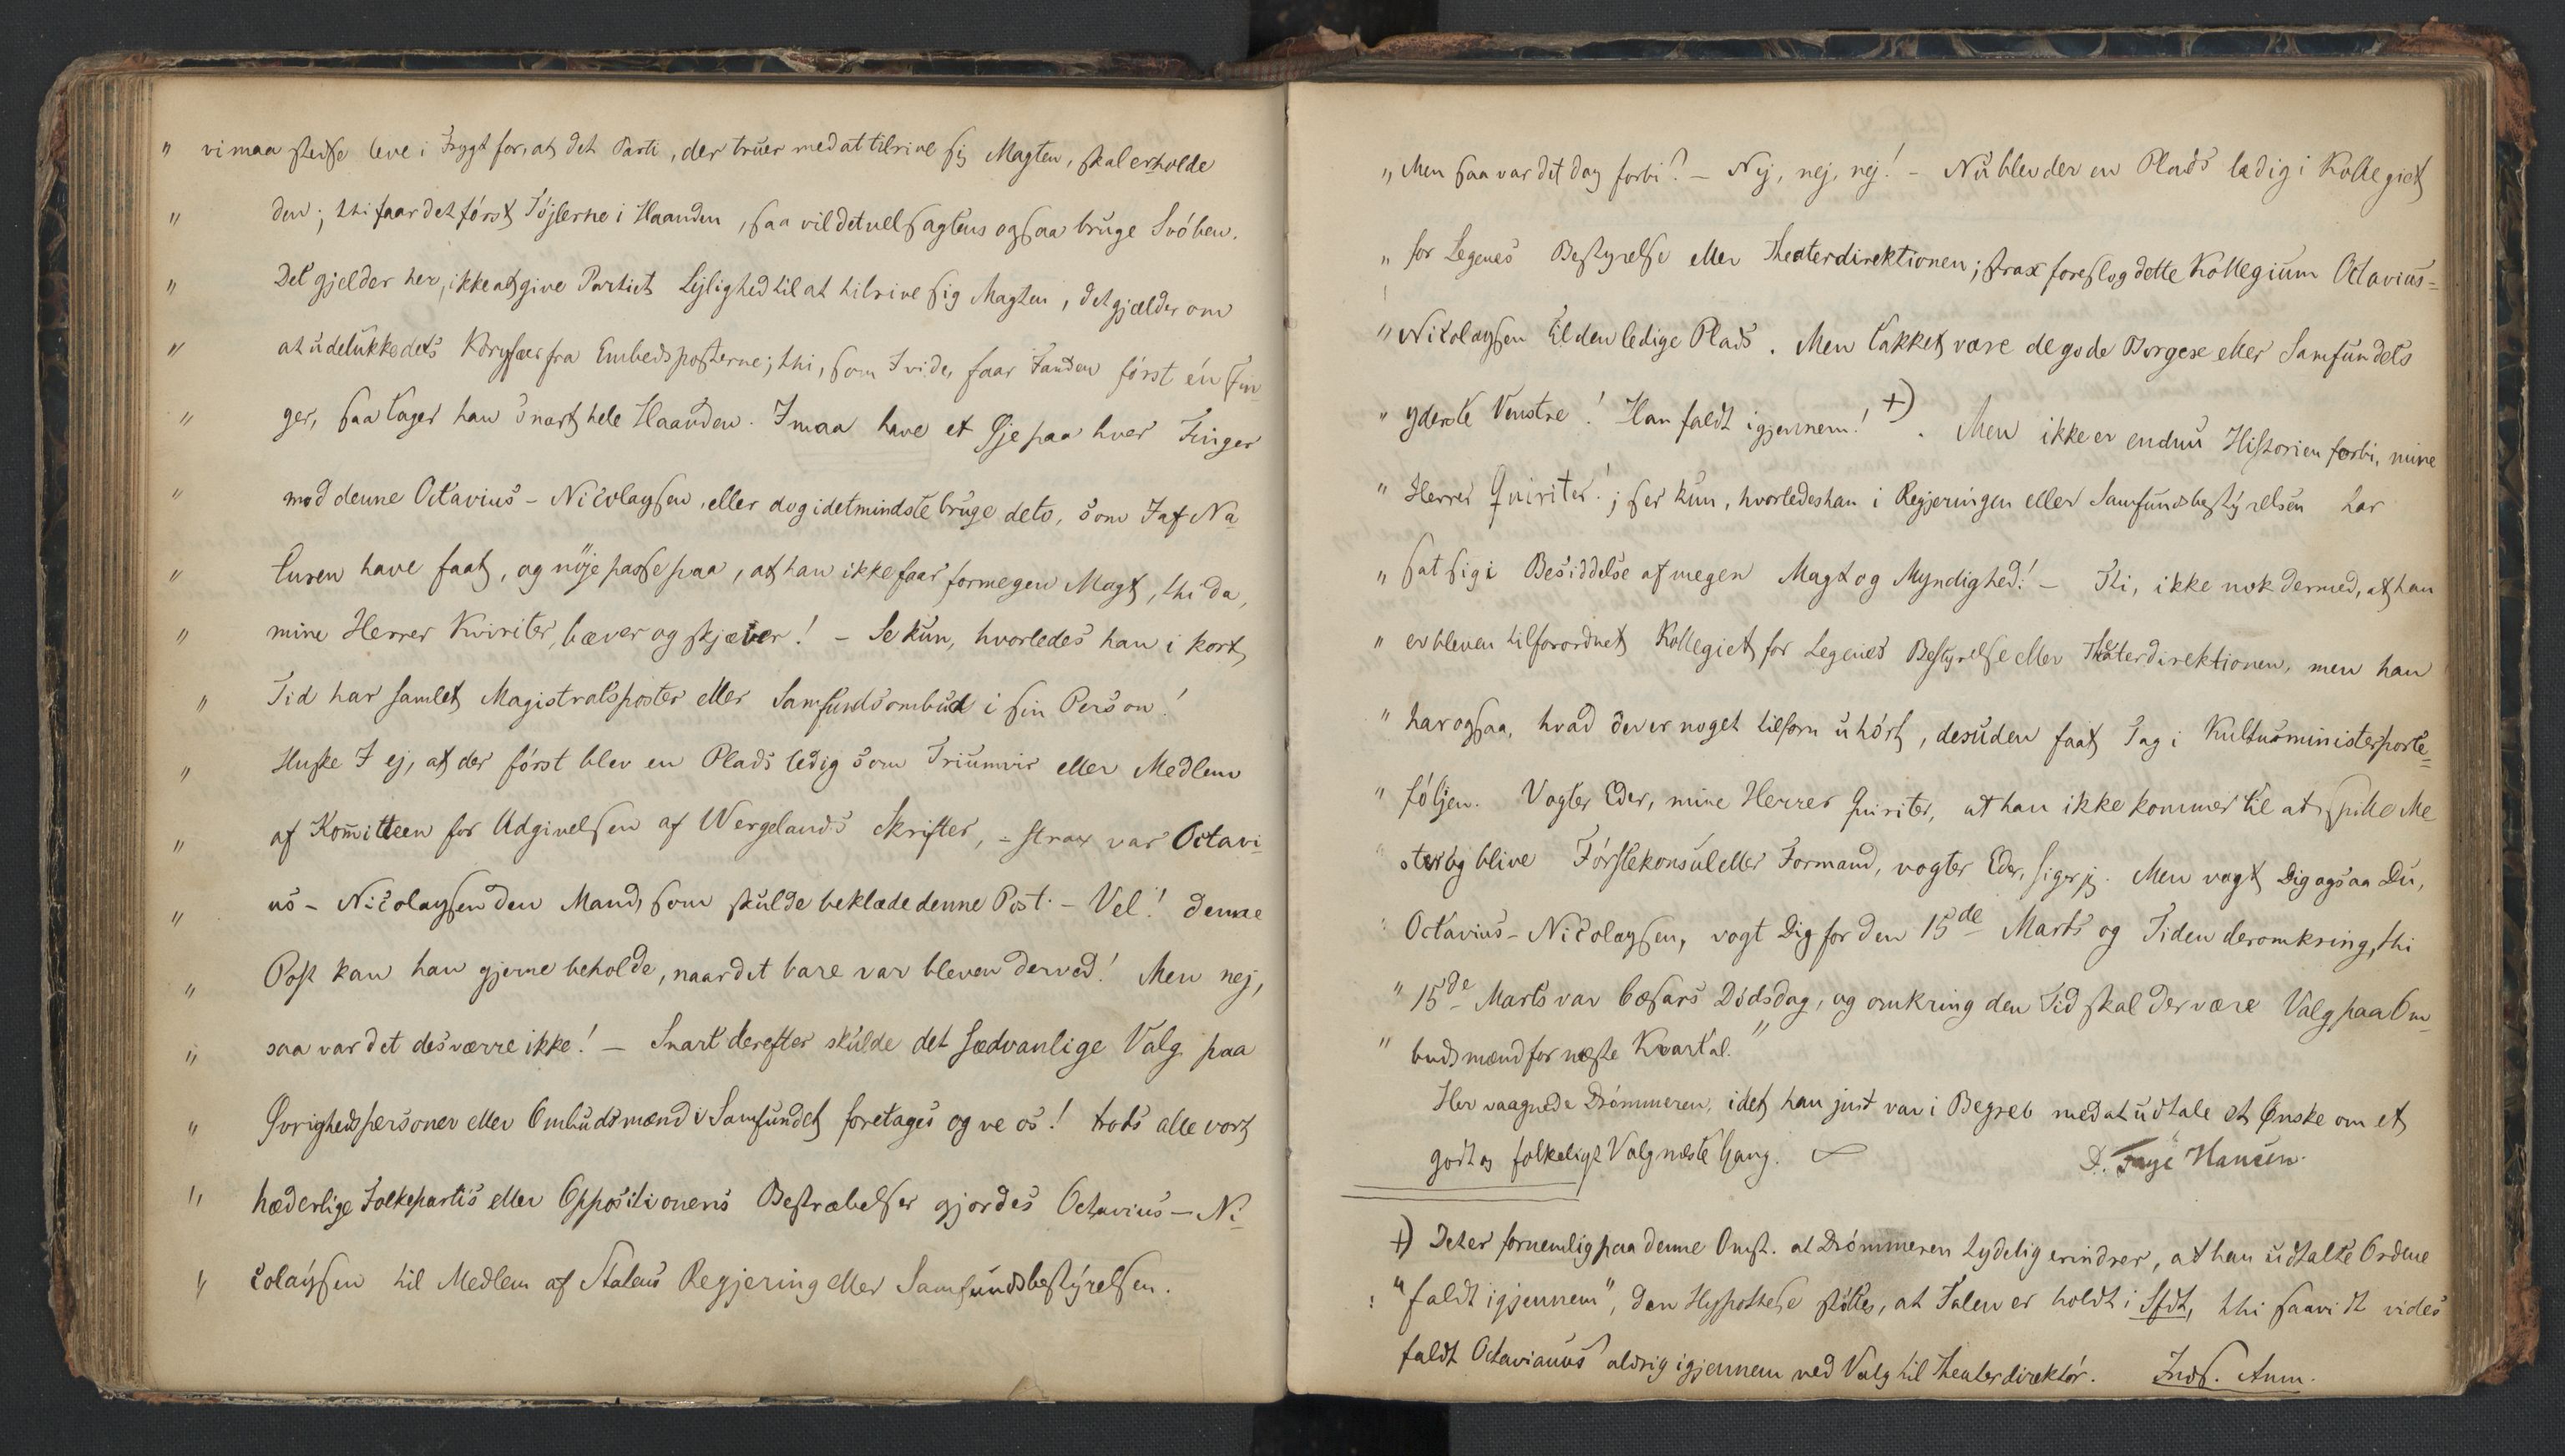 " vi maa stedse leve i Frygt for, at det Parti, der truer med at tilrive sig Magten, skal erholde
" den; thi faar det först Töjlerne i Haanden, saa vil det vel sagtens ogsaa bruge Svöben.
" Det gjelder her, ikke at give Partiet Lejlighed til at tilrive sig Magten, det gjælder om
" at udelukke dets Koryfæer fra Embedsposterne; thi, som I vide, faar Fanden först én Fin
" ger, saa tager han snart hele Haanden. I maa have et Øje paa hver Finger
" mod denne Octavius - Nicolaysen, eller dog idetmindste bruge de to, som I af Na
" turen have faat, og nöje passe paa, at han ikke faar formegen Magt, thi da,
" mine Herrer Kviriter, bæver og skjælver! - Se kun, hvorledes han i kort
" Tid har samlet Magistratsposter eller Samfundsombud i sin Person!
" Huske I ej, at der först blev en Plads ledig som Triumvir eller Medlem
" af Komitteen for Udgivelsen af Wergelands Skrifter, - strax var Octavi
" us - Nicolaysen den Mand, som skulde beklæde denne Post. - Vel! denne
" Post kan han gjerne beholde, naar det bare var bleven derved! Men nej,
" saa var det desværre ikke! - Snart derefter skulde det sædvanlige Valg paa
" Øvrighedspersoner eller Ombudsmænd i Samfundet foretages og ve os! trods alle vort
" hæderlige Folkepartis eller Oppositionens Bestræbelser gjordes Octavius - Ni
" colaysen til Medlem af Statens Regjering eller Samfundsbestyrelsen.
" Men saa var det dog forbi? - Nej, nej, nej! - Nu blev der en Plads ledig i Kollegiet
" for Legenes Bestyrelse eller Theaterdirektionen; strax foreslog dette Kollegium Octavius-
" Nicolaysen til den ledige Plads. Men takket være de gode Borgere eller Samfundets
" yderste Venstre! Han faldt igjennem! +). Men ikke er endnu Historien forbi, mine
" Herrer Quiriter!; ser kun, hvorledes han i Regjeringen eller Samfundsbestyrelsen har
" sat sig i Besiddelse af megen Magt og Myndighed! - Thi, ikke nok dermed, at han
" er bleven tilforordnet Kollegiet for Legenes Bestyrelse eller Theaterdirektionen, men han
" har ogsaa, hvad der er noget tilforn uhört, desuden faat Tag i Kultusministerporte=
" följen. Vogter Eder, mine Herrer Quiriter, at han ikke kommer til at spille Me
" ster og blive Förstekonsul eller Formand, vogter Eder, siger jeg. Men vogt Dig ogsaa Du,
" Octavius - Nicolaysen, vogt Dig for den 15de Marts og Tiden deromkring, thi
" 15de Marts var Cæsars Dödsdag, og omkring den Tid skal der være Valg paa Om
" budsmænd for næste Kvartal."
Her vaagnede Drömmeren, idet han just var i Begreb med at udtale et Ønske om et
godt og folkeligt Valg næste Gang.
D. Faye Hansen.
+) Det er fornemlig paa denne Omst. at Drömmeren tydelig erindrer, at han udtalte Ordene
: "faldt igjennem", den Hypothese stöttes, at Talen er holdt i Sfdt, thi saavidt vides
faldt Octavianus aldrig igjennem ved Valg til Theaterdirektör. Inds. Anm.